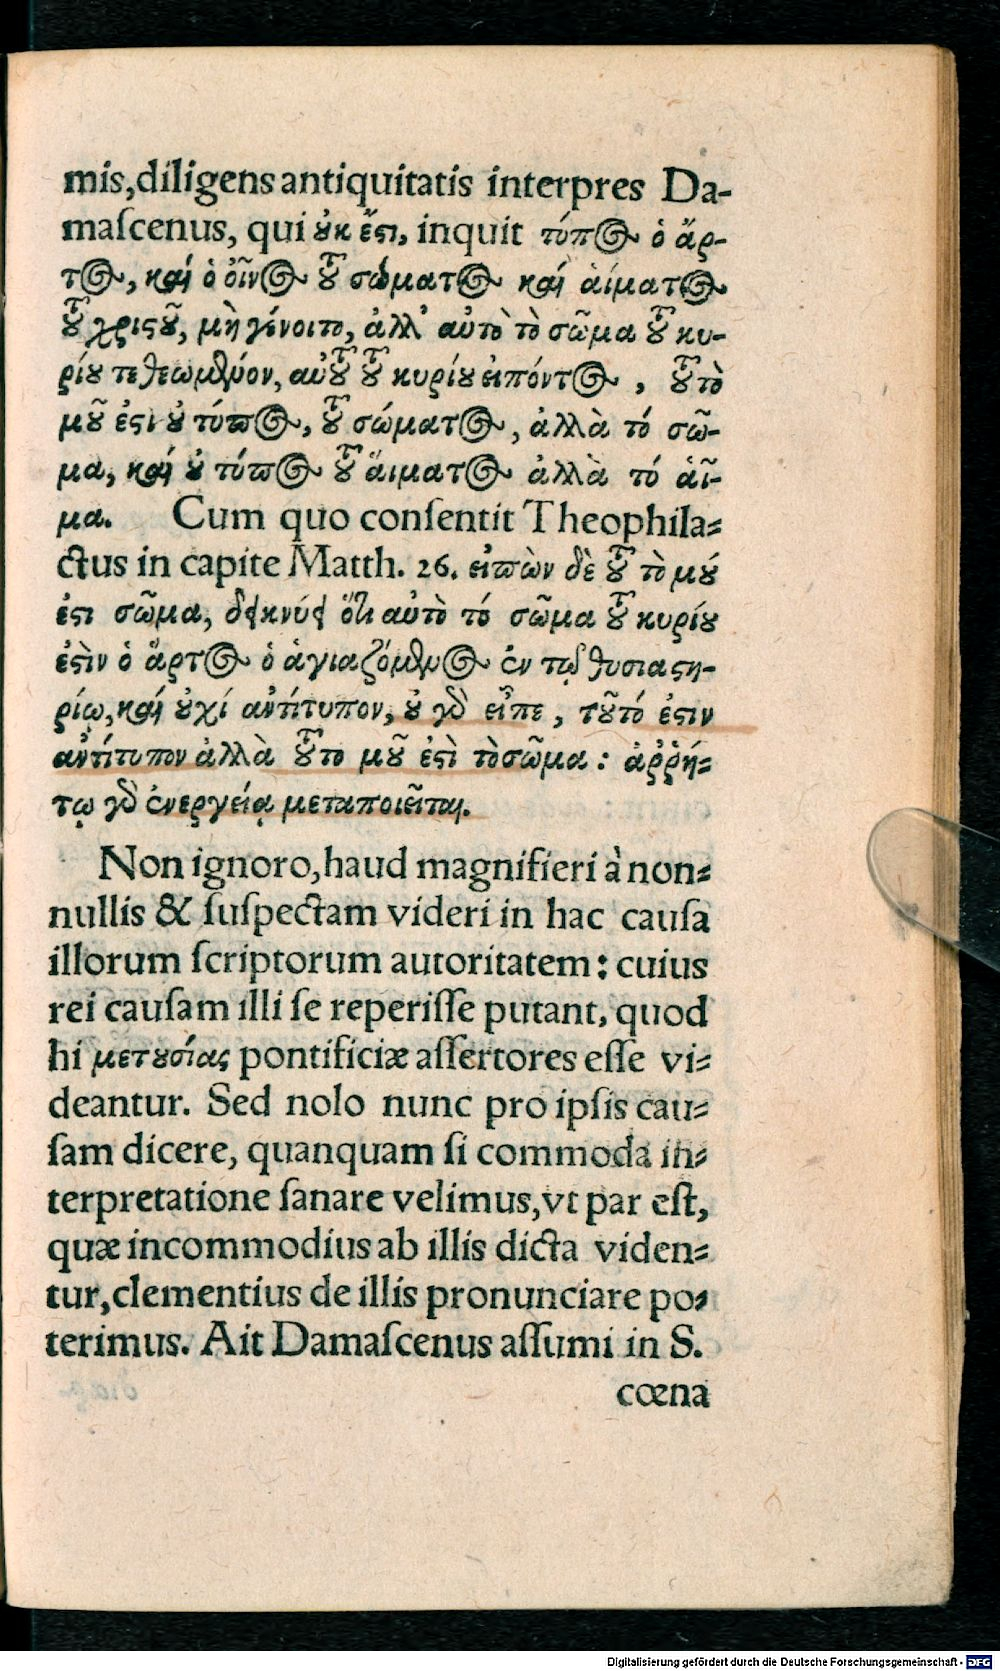 mis,diligens antiquitatis interpres Da-
maſcenus, qui ȣκ ἔϛι, inquit τύπος ὁ ἄρ-
τος, καί ὁ οἶνος τȣ͂ σώματος καί ἁίματος
τȣ͂ χριϛȣ͂, μὴ γένοιτο, ἀλλ' αὐτὸ τὸ σῶμα τȣ͂ κυ-
ρίȣ τεθεωμένον, αὐτȣ͂ τȣ͂ κυρίȣ ειπόντος, τȣ͂τὸ
μȣ͂ ἐϛι ȣ̓ τύπος, τȣ͂ σώματος, ἀλλὰ τό σῶ-
μα, καί ȣ̓ τύπος τȣ͂ ἅιματος ἀλλὰ τό ἁῖ-
μα. Cum quo conſentit Theophila⸗
ctus in capite Matth. 26. ειπὼν δὲ τȣ͂τὸ μȣ́
ἐϛι σῶμα, δείκνύει ὅτι αὐτὸ τό σῶμα τȣ͂ κυρίȣ
ἐϛὶν ὁ ἄρτος ὁ ἁγιαζόμενος ἐν τῷ θυσιαϛη-
ρίῳ,καί ȣ̓χί αντίτυπον, ȣ̓ γὰρ εἶπε, τȣ͂τό ἐϛιν
αντίτυπον ἀλλὰ τȣ͂το μȣ͂ ἐϛὶ τὸ σῶμα: ἀῤῥή⸗
τῳ γὰρ ἐνεργείᾳ μεταποιεῖται.
Non ignoro,haud magnifieri à non⸗
nullis & ſuſpectam videri in hac cauſa
illorum ſcriptorum autoritatem: cuius
rei cauſam illi ſe reperiſſe putant, quod
hi μετȣσίας pontificiæ aſſertores eſſe vi⸗
deantur. Sed nolo nunc pro ipſis cau⸗
ſam dicere, quanquam ſi commoda in⸗
terpretatione ſanare velimus,vt par eſt,
quæ incommodius ab illis dicta viden⸗
tur,clementius de illis pronunciare po⸗
terimus. Ait Damaſcenus aſſumi in S.
cœna
Digitalisierung gefördert durch die Deutsche Forschungsgemeinschaft - DFG